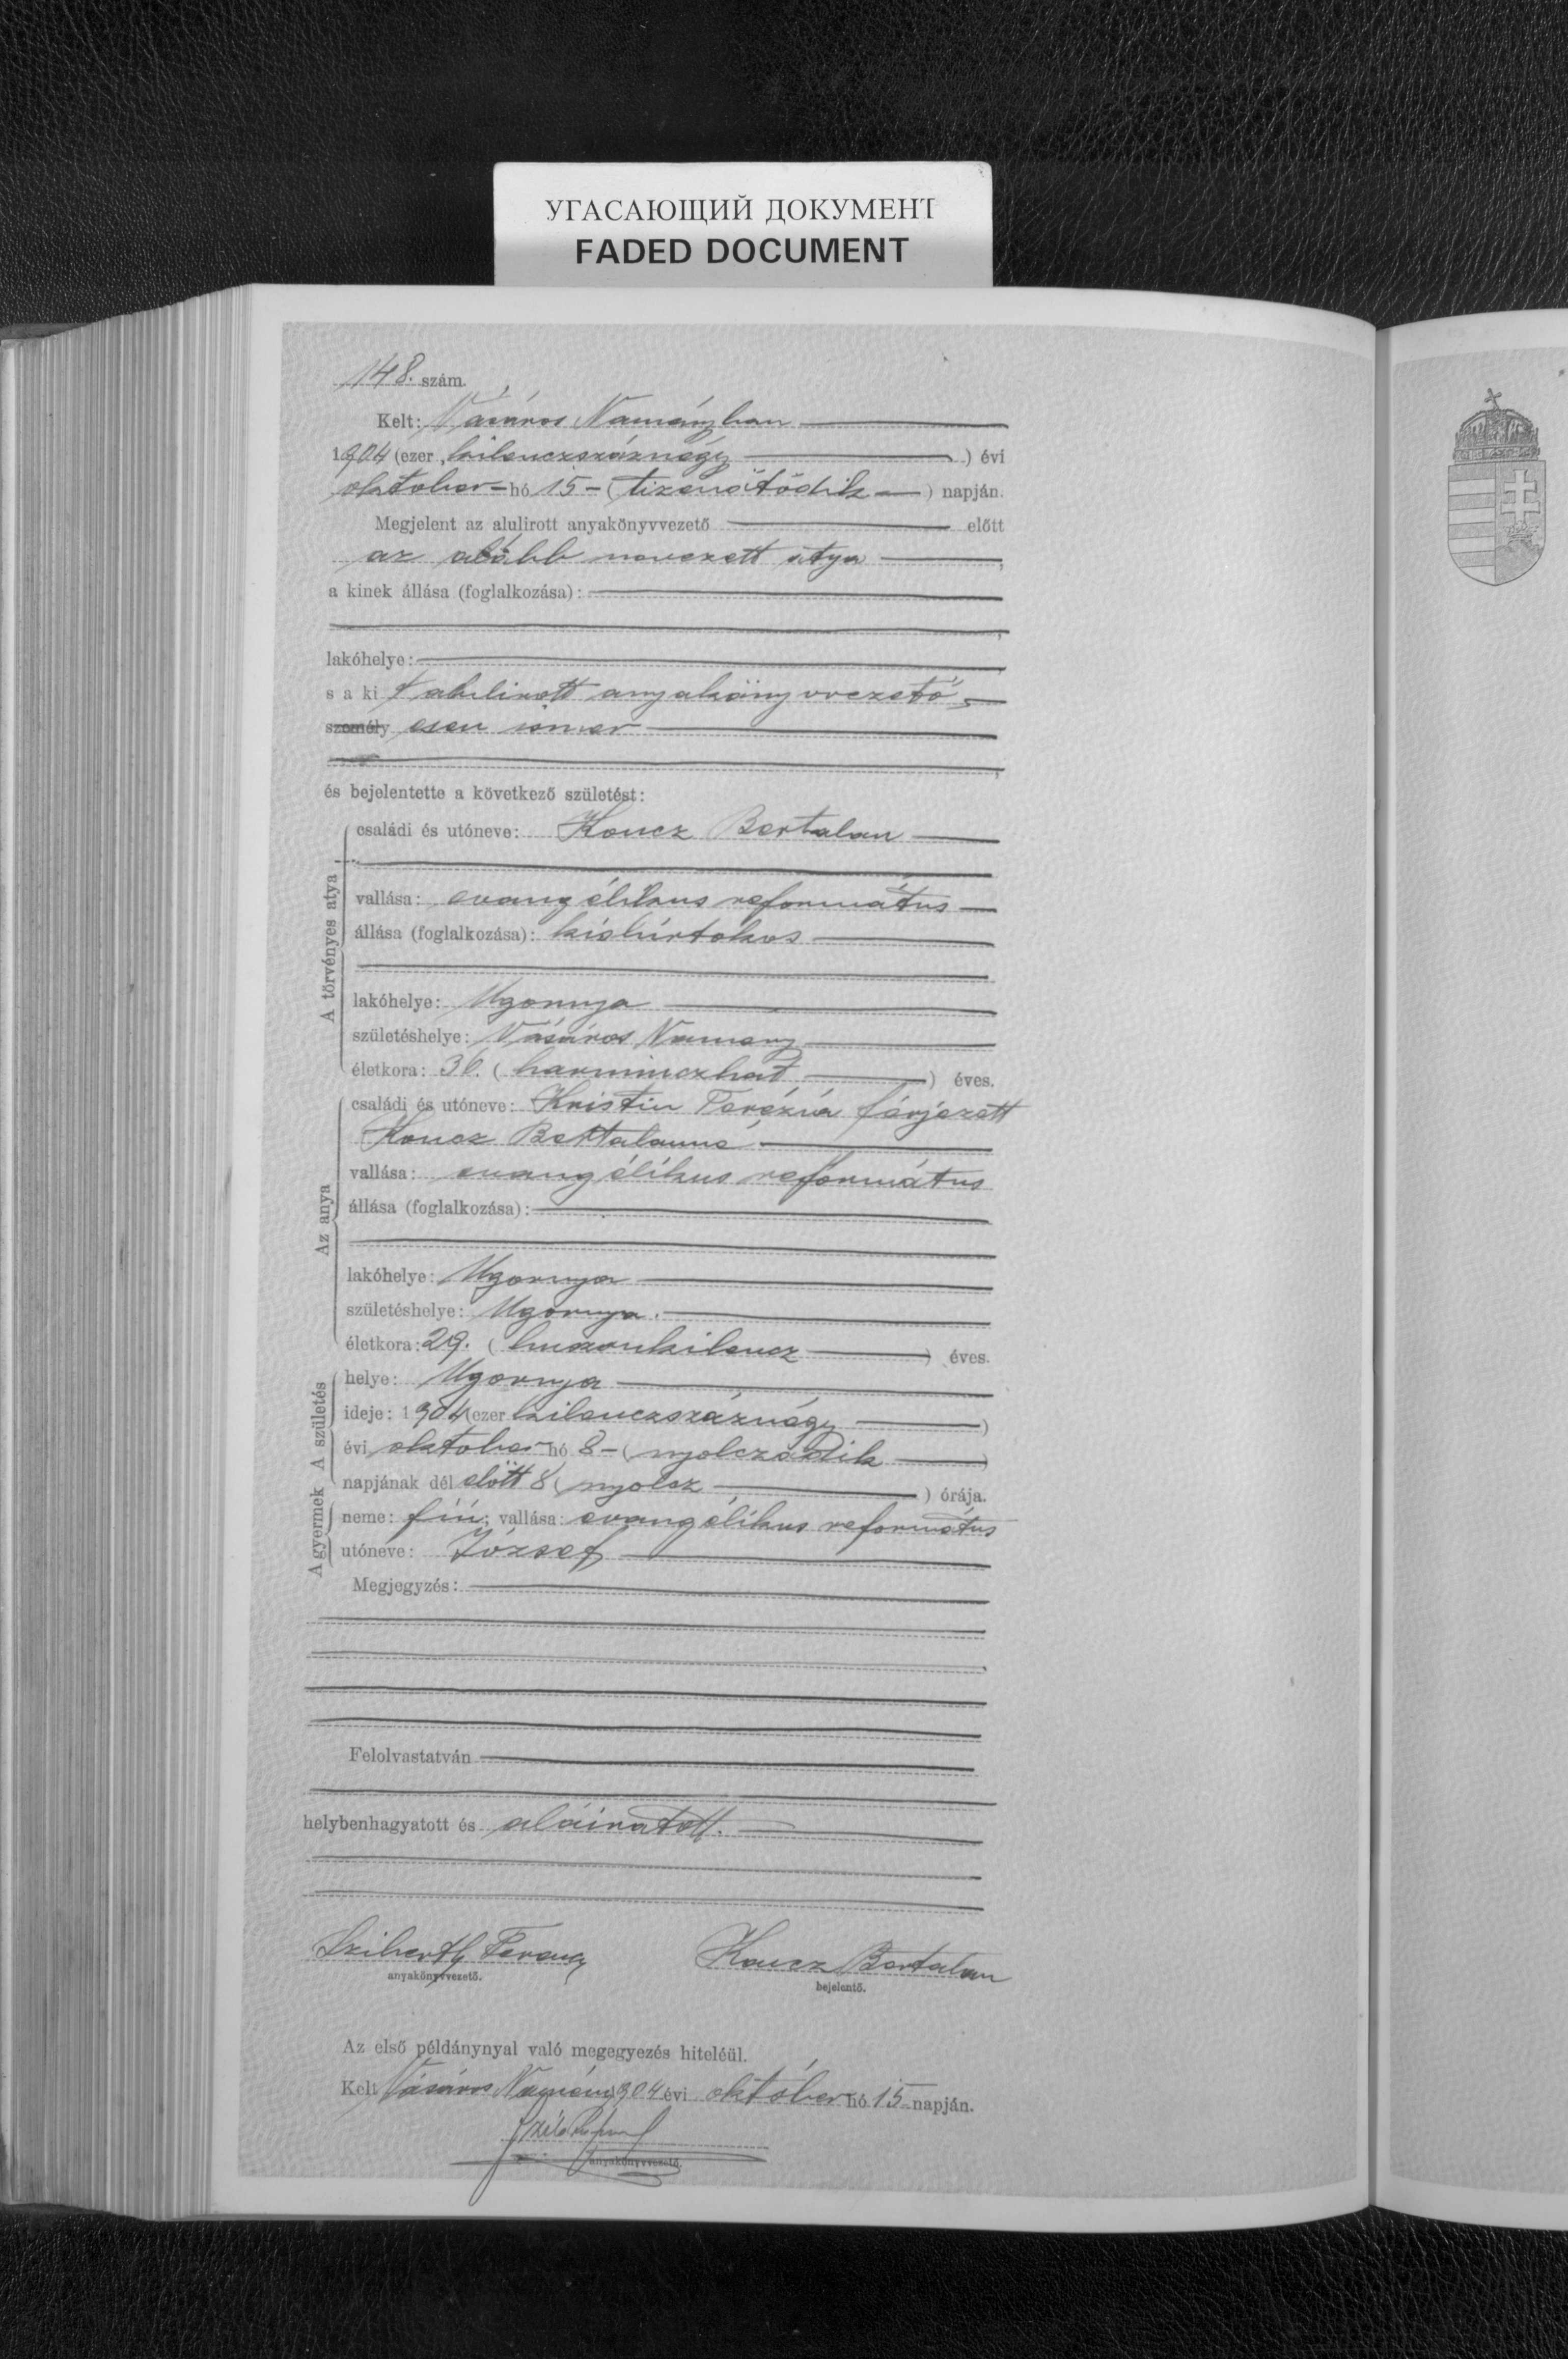 УГАСАЮЩИЙ ДОКУМЕНТ
FADED DOCUMENT
148. szám.
Kelt: Vásáros Naményban
1904 (ezer kilenczszáznégy ) évi
oktober hó 15 - ( tizenötödik ) napján.
Megjelent az alulirott anyakönyvvezető előtt
az alább nevezett atya ,
a kinek állása (foglalkozása):
lakóhelye:
s a ki alulirott anyakönyvvezető
személy esen ismer
és bejelentette a következő születést:
A törvényes atya
családi és utóneve: Koncz Bertalan
vallása: evangélikus református
állása (foglalkozása): kisbirtokos
lakóhelye: Ugornya
születéshelye: Vásáros Nameny
életkora: 36. ( harminczhat ) éves.
Az anya
családi és utóneve: Kristin Terézia férjezett
Koncz Bertalanné
vallása: evangélikus református
állása (foglalkozása):
lakóhelye: Ugornya
születéshelye: Ugornya.
életkora: 29. ( huszonkilencz ) éves.
A születés
helye: Ugornya
ideje: 1904 (ezer kilenczszáznégy )
évi oktober hó 8 - ( nyolczadik )
napjának dél előtt 8 ( nyolcz ) órája.
A gyermek
neme: fiú; vallása: evangélikus református
utóneve: József
Megjegyzés:
Felolvastatván
helybenhagyatott és aláiratott.
Ferencz Koncz Bertalan
anyakönyvvezető. bejelentő.
Az első példánynyal való megegyezés hiteléül.
Kelt Vásáros Namény 904 évi október hó 15 napján.
anyakönyvvezető.